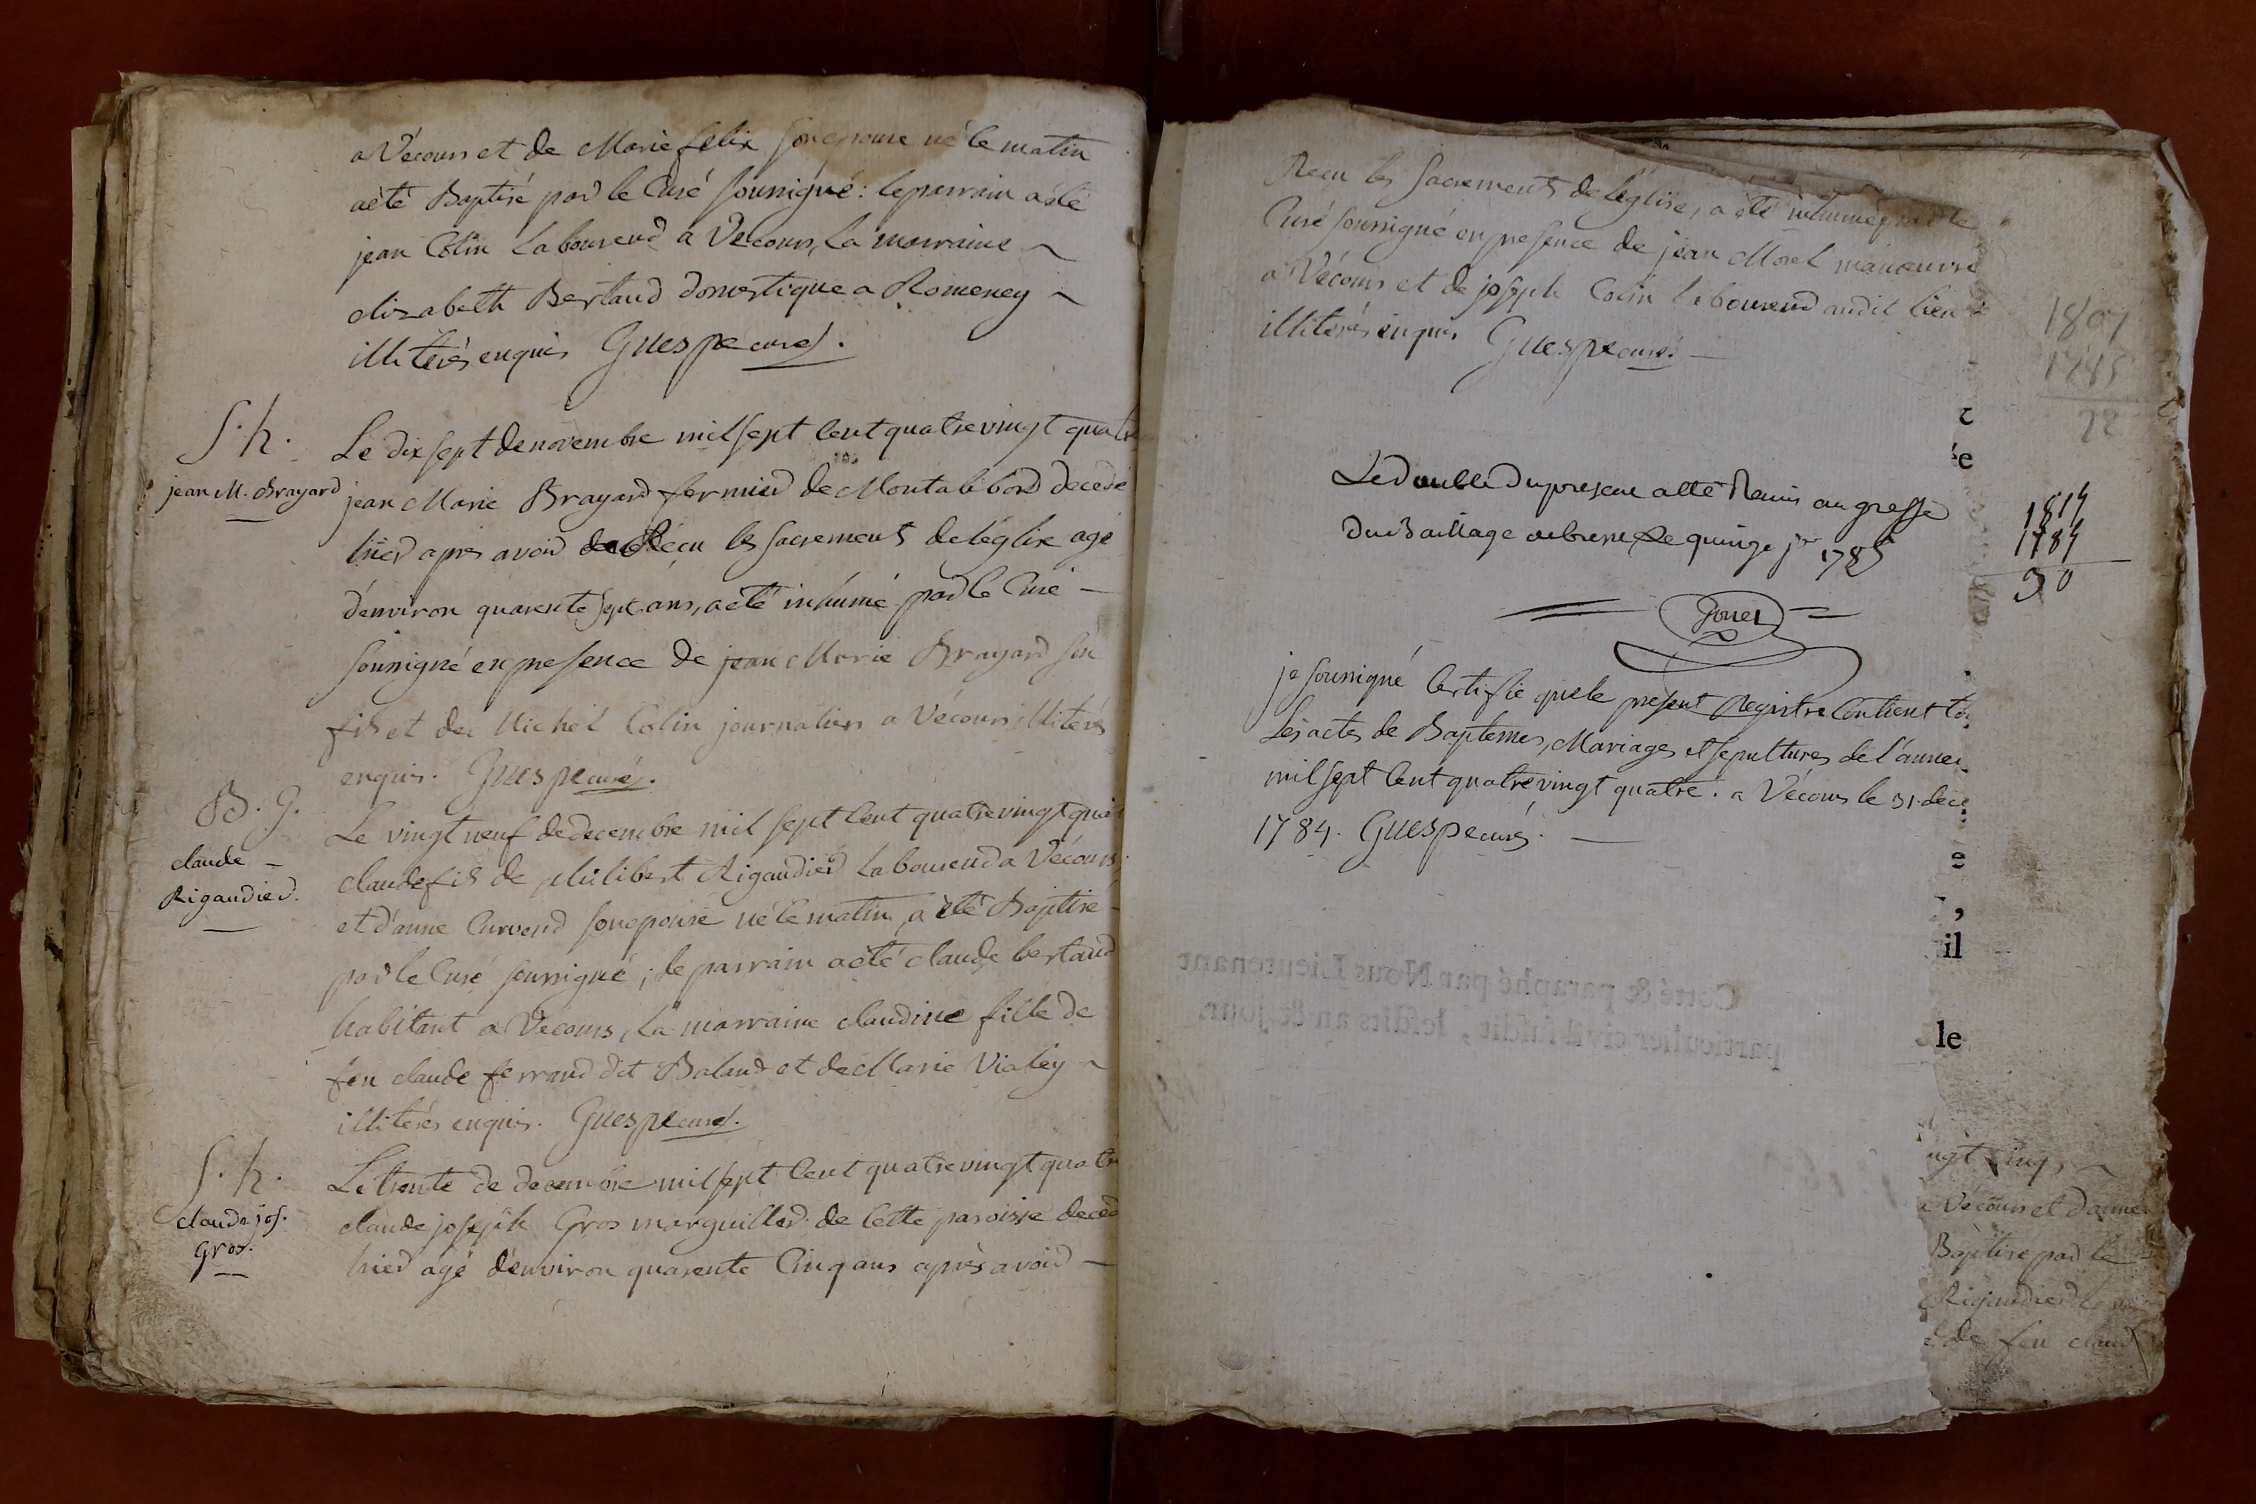 a Vécours et de Marie felix son epouse né le matin
aèté Baptisé par le Curé soussigné : le parrain aèté
jean Colin Laboureur a Vecours, la marraine ~
elizabeth Bertaud domestique a Romeney ~
illiterés enquis Guespe curé.
S. h.
jean M. Brayard
Le dix sept de novembre mil sept Cent quatrevingt quatre
jean Marie Brayard fermier de Montalibord decedé
hier apres avoir Reçu les sacrements de léglise agé
d'environ quarente sept ans, aèté inhumé par le Curé —
soussigné en presence de jean Marie Brayard son
fils et de Michel Colin journaliers a Vécours illiterés
enquis. Guespe curé.
B. g.
claude —
Rigaudier.
Le vingt neuf de decembre mil sept Cent quatrevingt quat
claude fils de philibert Rigaudier Laboureur a Vécours
et d'anne Curveur son epouse né le matin, a èté Baptisé
par le Curé soussigné ; le parrain aèté claude bertaud
habitant a Vecours, la marraine claudine fille de
feu claude ferrand dit Baland et de Marie Vialey ~
illiterés enquis. Guespe curé.
S. h.
claude jos.
Gros.
Le trente de decembre mil sept Cent quatrevingt quatr
claude joseph Gros marguiller de Cette paroisse deced
hier agé d'environ quarente Cinq ans après avoir —
Recu les Sacrements de léglise, a èté inhumé par le
Curé soussigné en presence de jean Morel manœuvre
a Vécours et de joseph Colin laboureur audit lieu
illiterés enquis Guespe curé —
1807
1785
22
Le double du present a été Remis au greffe
du Bailliage de bresse Le quinze jer 1785
1814
1784
30
je soussigné Certifie que le present Registre Contient to
Les actes de Baptemes, Mariages et sepultures de l'année
mil sept Cent quatrevingt quatre. a Vécours le 31. dece
1784. Guespe curé. —
e
,
il
Cotté & paraphé par Nous Lieutenant
particulier civil susdit, lesdits an & jour.
le
ngt Cinq ~
Vécours et d'anne
Baptisé par le
Rigaudier
de feu claud